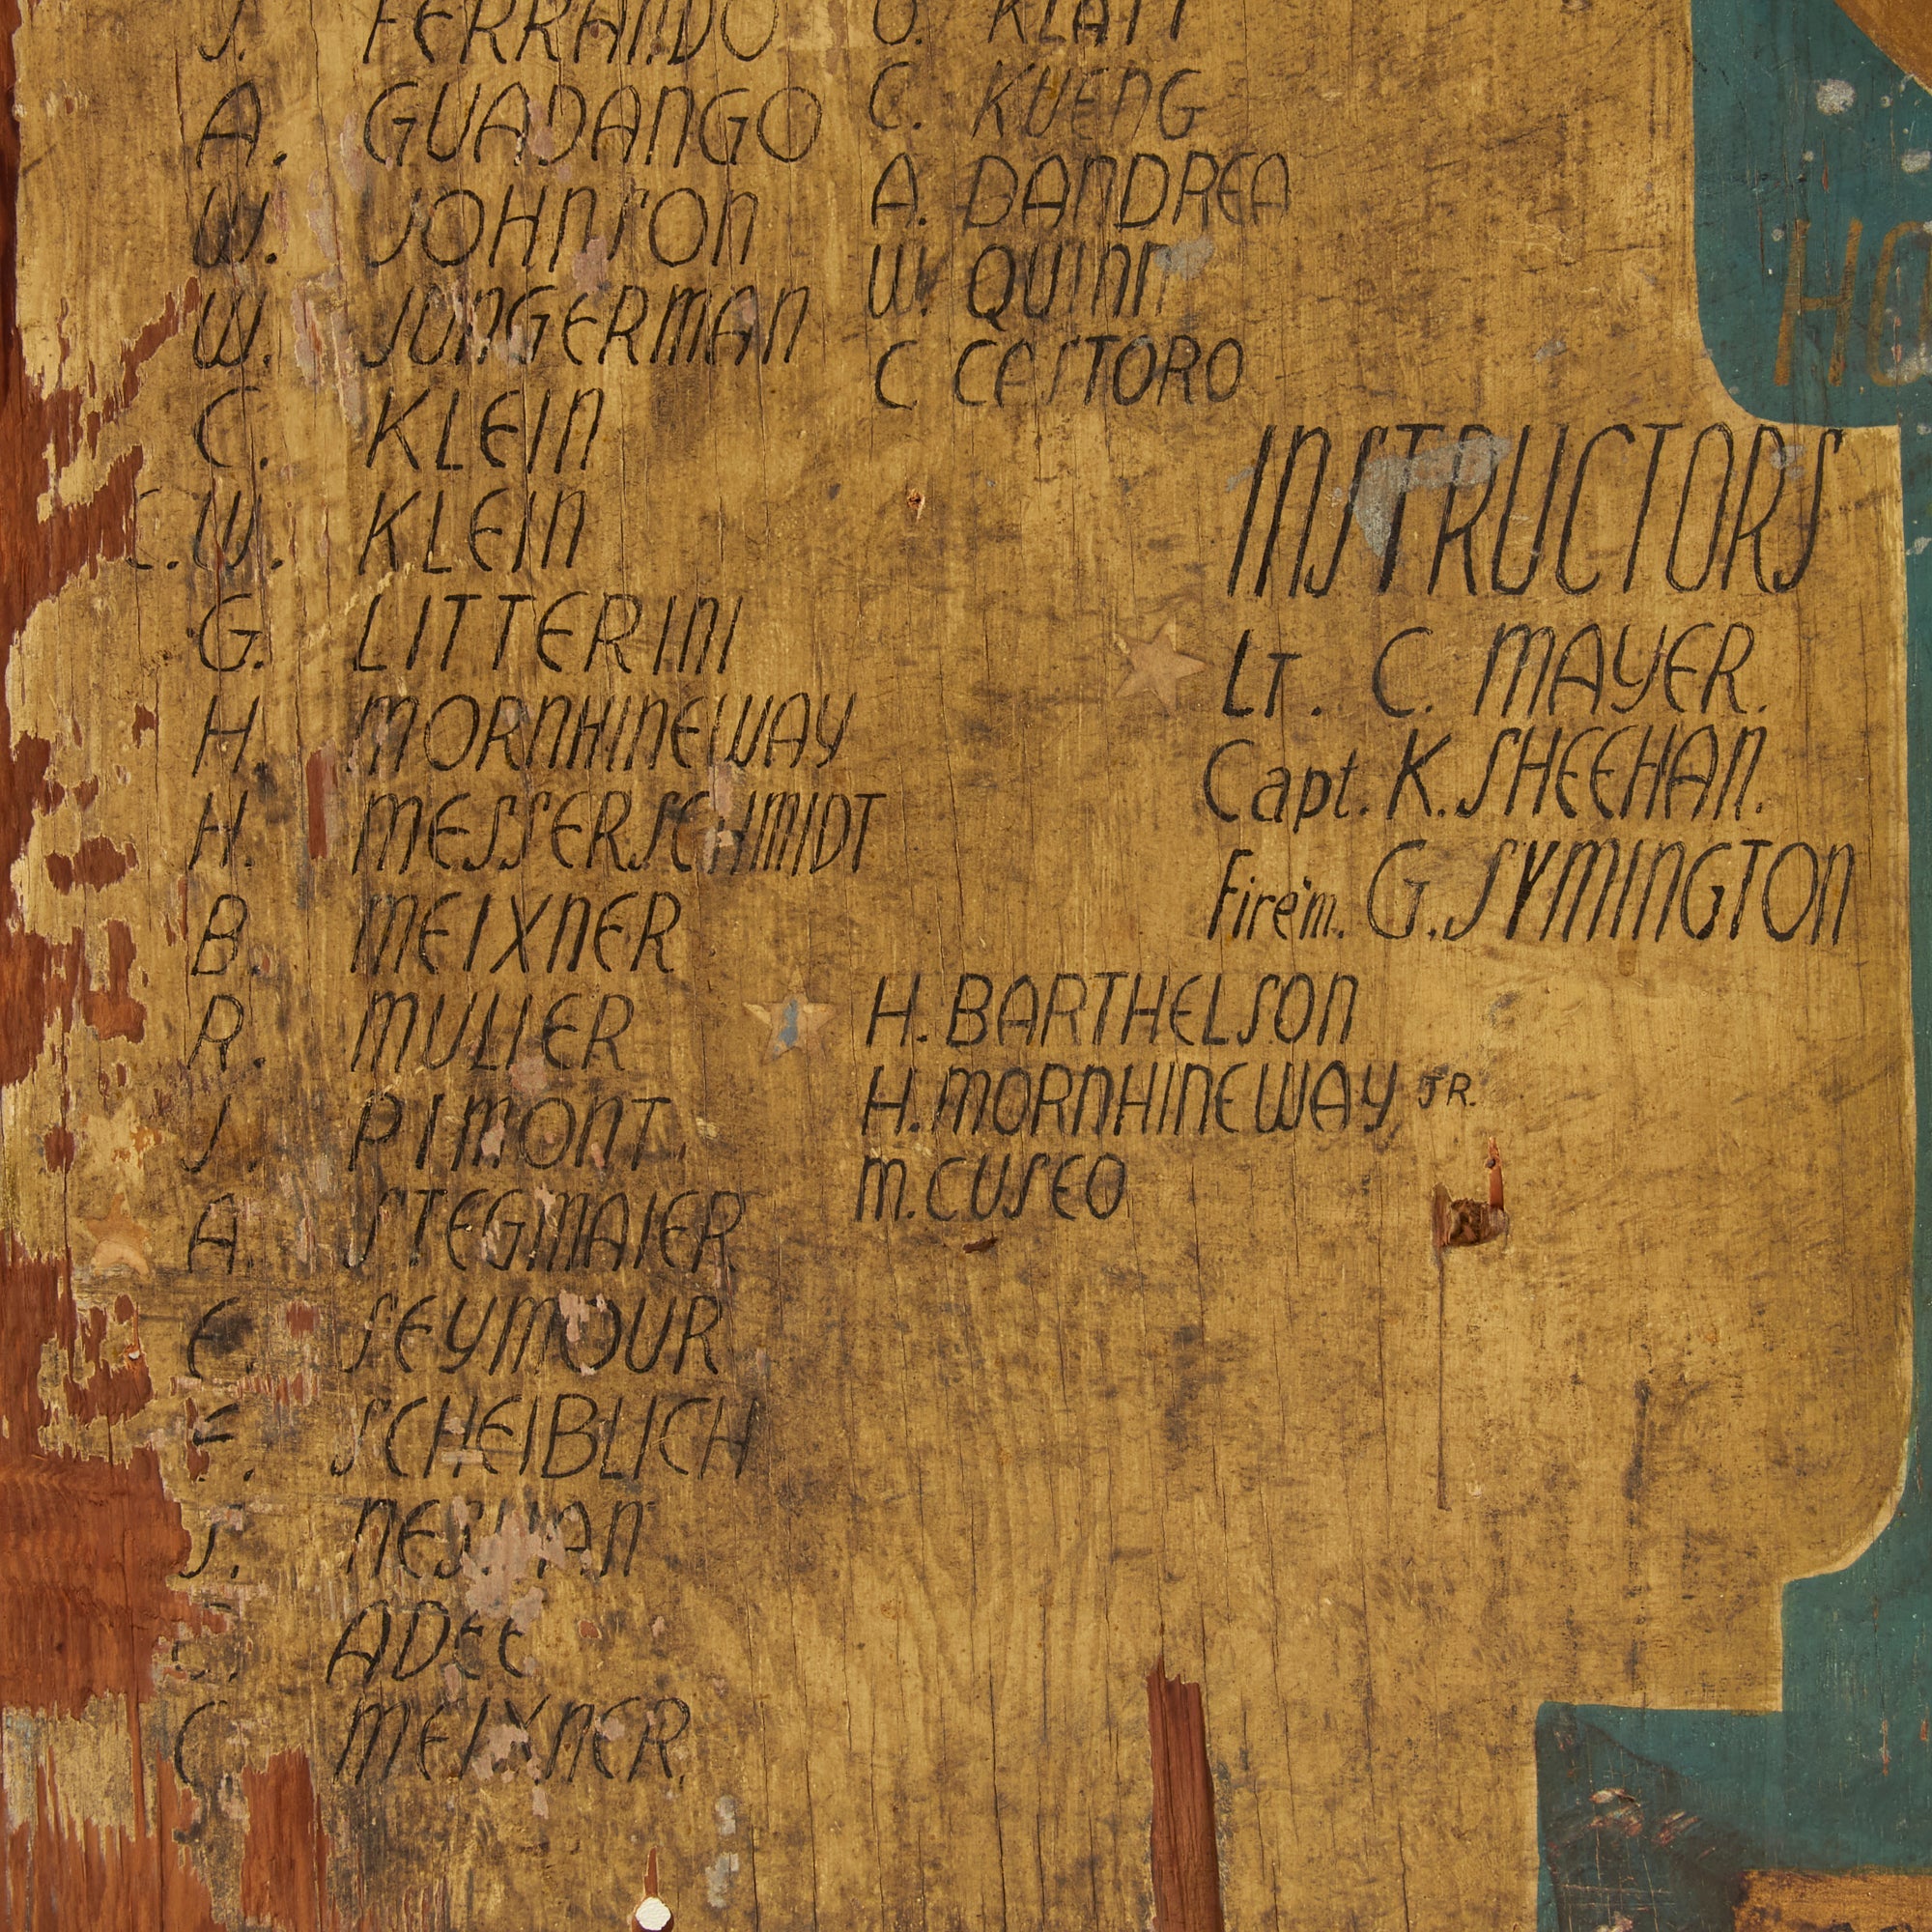 J. FERRANDO
A. GUADANGO
W. JOHNSON
W. JUNGERMAN
C. KLEIN
C.W. KLEIN
G. LITTERINI
H. MORNHINEWAY
H. MESSERSCHMIDT
B. MEIXNER
R. MULLER
J. PIMONT.
A. STEGMAIER
E. SEYMOUR
F. SCHEIBLICH
J.
ADEE
C. MEIXNER.
O. KLATT
C. KUENG
A. DANDREA
W. QUINN
C CESTORO
INSTRUCTORS
LT. C. MAYER.
Capt. K. SHEEHAN.
Fire'm. G. SYMINGTON
H. BARTHELSON
H. MORNHINEWAY, JR.
M. CUSEO
HO